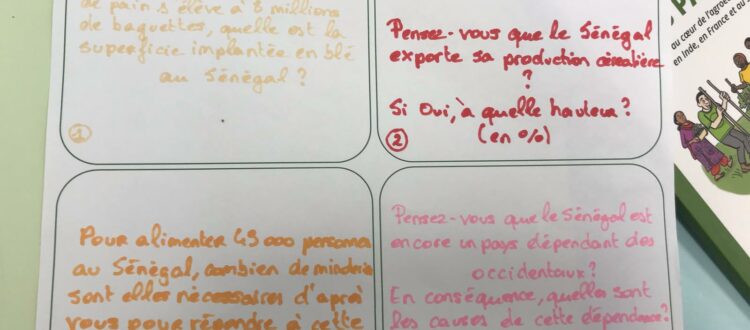 de pain s'élève à 8 millions
de baguettes, quelle est la
superficie implantée en blé
au Sénégal ?
1
Pensez-vous que le Sénégal
exporte sa production céréalière
?
Si Oui, à quelle hauteur?
(en %)
2
Pour alimenter 45 000
au Sénégal, combien de
sont elles nécessaires d'après
vous pour répondre à cette
Pensez-vous que le Sénégal est
encore un pays dépendant des
occidentaux?
En conséquence, quelles sont
les causes de cette dépendance?
au cœur de l'agroé
en Inde, en France et au